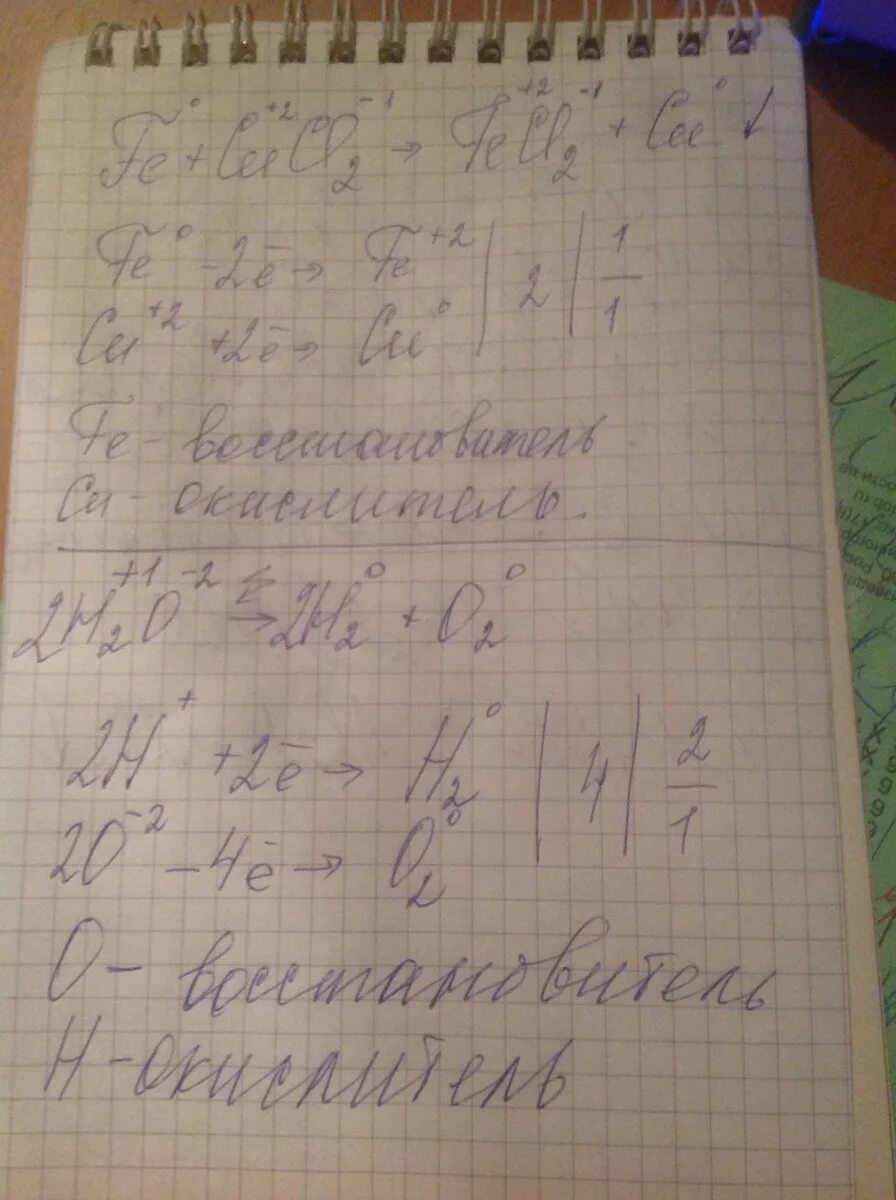 Fe⁰ + Cu⁺²Cl₂⁻¹ → Fe⁺²Cl₂⁻¹ + Cu⁰ ↓
Fe⁰ -2ē → Fe⁺² | 2 | 1
Cu⁺² +2ē → Cu⁰ | 1
Fe - восстановитель.
Cu - окислитель.
2H₂⁺¹O⁻² → 2H₂⁰ + O₂⁰
2H⁺ +2ē → H₂⁰ | 4 | 2
2O⁻² -4ē → O₂⁰ | 1
O - восстановитель
H - окислитель